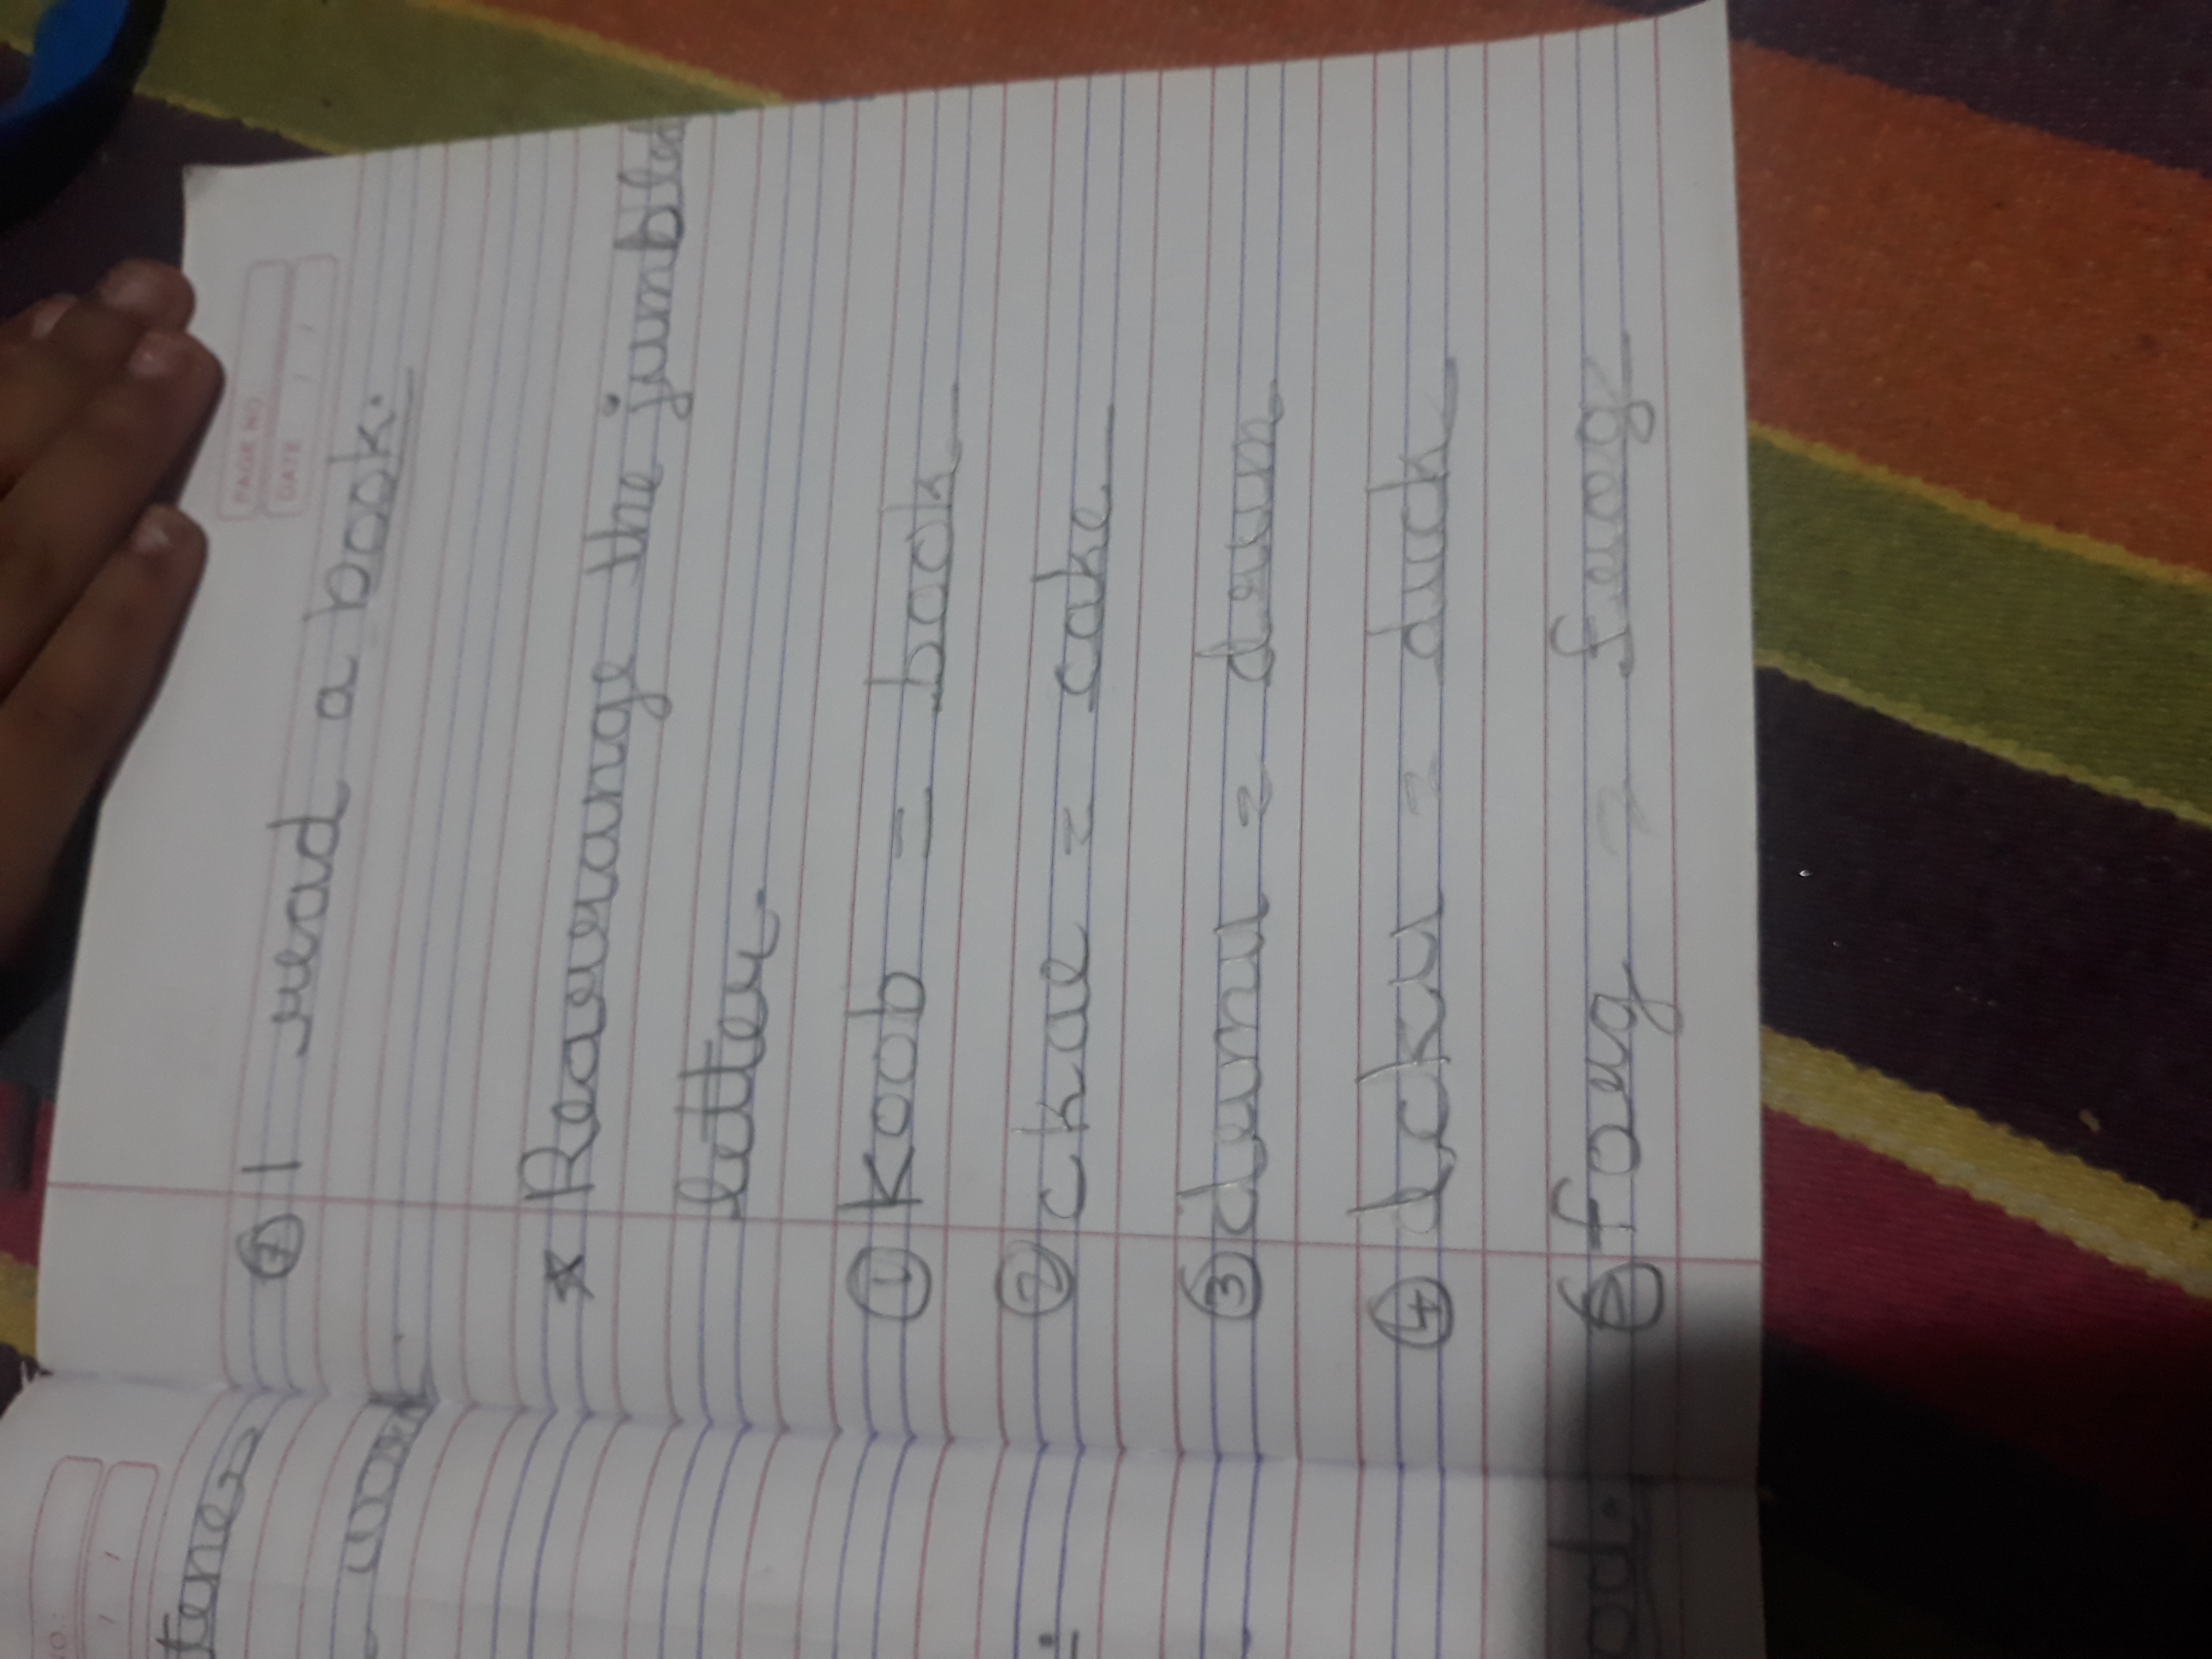 PAGE NO
DATE / /
7 I read a book.
* Rearrange the jumbled
letter.
1 koob = book
2 ckae = cake
3 drmu = drum
4 dcku = duck
5 forg = frog